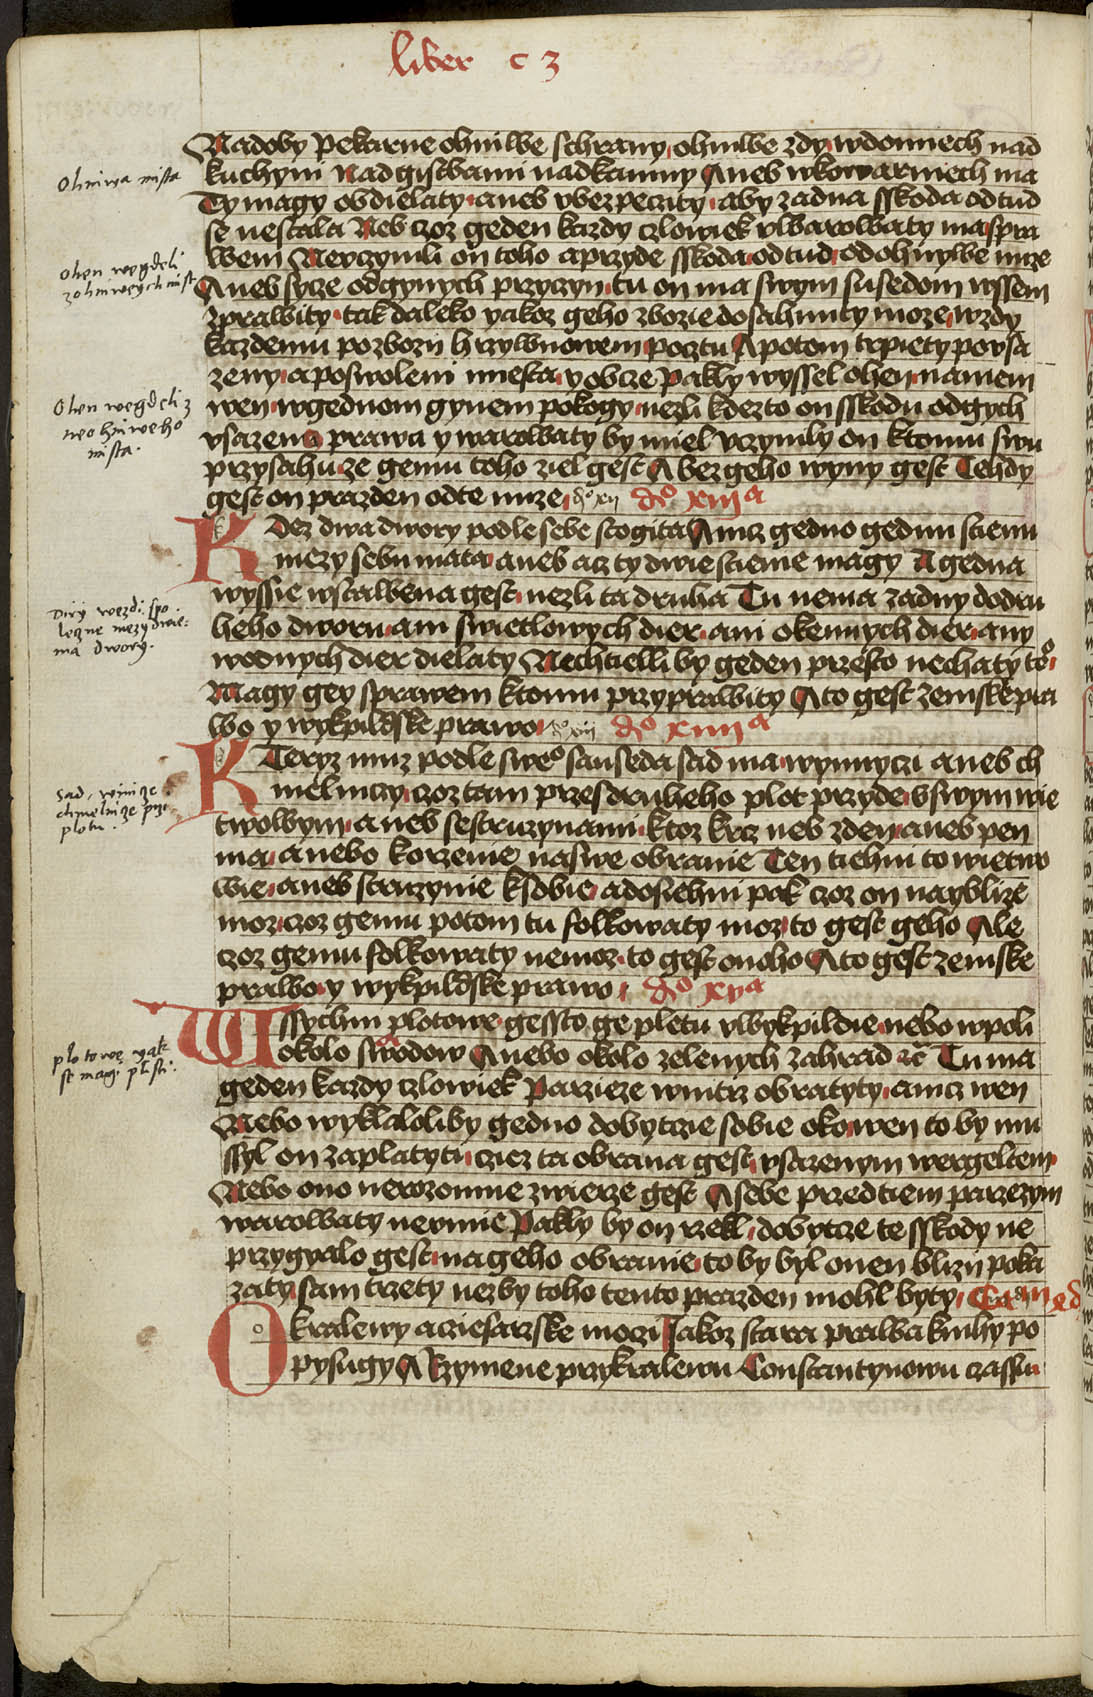 liber c 3
Nadoby pekarne ohniwe schrany ohniwe zdy wdomiech nad
kuchyni Nad gistbami nadkamny Aneb wkowarniech ma
Ty magy obdielaty aneb vbezpeczity aby zadna sskoda odtud
se nestala Neb czoz geden kazdy czlowiek vlwarowaty ma spra
wem Neuczinili on toho a przyde sskoda odtud od ohnywe mize
Aneb sycze odgynych przyczyn tu on ma swym susedom wssem
zprawity tak daleko yakoz geho zbozie dosahnuty moze wzdy
kazdemu po zbozy hrzywnowem pocztu A potom trpiety povsa
zeny a poswoleni miesta y obcze Pakly wyssel ohen namem
wen wgednom gynem pokogy nezli kdezto on sskodu odgych
vsazeno prawa y warowaty by miel Vczynily on ktomu swu
przysahu ze gemu toho ziel gest A bez geho wyny gest Tehdy
gest on prazden odte mize do xii do xiii a
KDez dwa dwory podle sebe stogita A nicz gedno gednu stienu
mezy sebu mata aneb acz ty dwie stienie magy A gedna
wyssie wstawena gest nezli ta druha Tu nema zadny dodru
heho dworu ani swietlowych dier ani okennych dier any
wodnych dier dielaty Nechtielli by geden przesto nechaty to
Magy gey sprawem ktomu przyprawity A to gest zemske pra
wo y wykpildske prawo do xiii do xiiii a
KTeryz muz podle sweo sauseda sad ma wynnyczi aneb ch
melniczy czoz tam przes druheho plot przyde bswym wie
twowym aneb sestruzynami ktoz krz neb zden aneb pen
ma anebo korzenie naswe obranie Ten tiehni to wietwo
wie aneb struzynie ksobie a dosiehni pak czoz on nayblize
moz czoz gemu potom tu folkowaty moz to gest geho Ale
czoz gemu folkowaty nemoz to gest onoho A to gest zemske
prawo y wykpildske prawo do xv a
WSsychni plotowe gessto ge pletu vwykpildie nebo wpoli
okolo swodow Anebo okolo zelenych zahrad zc Tu ma
geden kazdy czlowiek Parzieze wnitrz obratyty a nicz wen
Nebo wyklaloliby gedno dobytcze sobie oko wen to by mu
syl on zaplatyti cziez ta obrana gest vsazenym wergeltem
Nebo ono nerozomne zwierze gest A sebe przed tiem parzezym
warowaty neumie Pakly by on rzekl dobytcze te sskody ne
przygyalo gest na geho obranie to by byl onen blizy poka
zaty sam trzety nezby toho tento prazden mohl byty
O kralewy a cziesarzske moczi Jakoz stara prawa knihy po
pysugy A Rzymene przykralewu Constantynowu czassu
Ohniwa mista
Ohen wygdeli
z ohniweych mist
Ohen wegdeli z
neohniweho
mista.
Diry wezdi spo
leczne mezy dwie
ma dwory.
Sad, winicze
chmelnicze przi
plotu.
plotowe yak
se magi plesti.